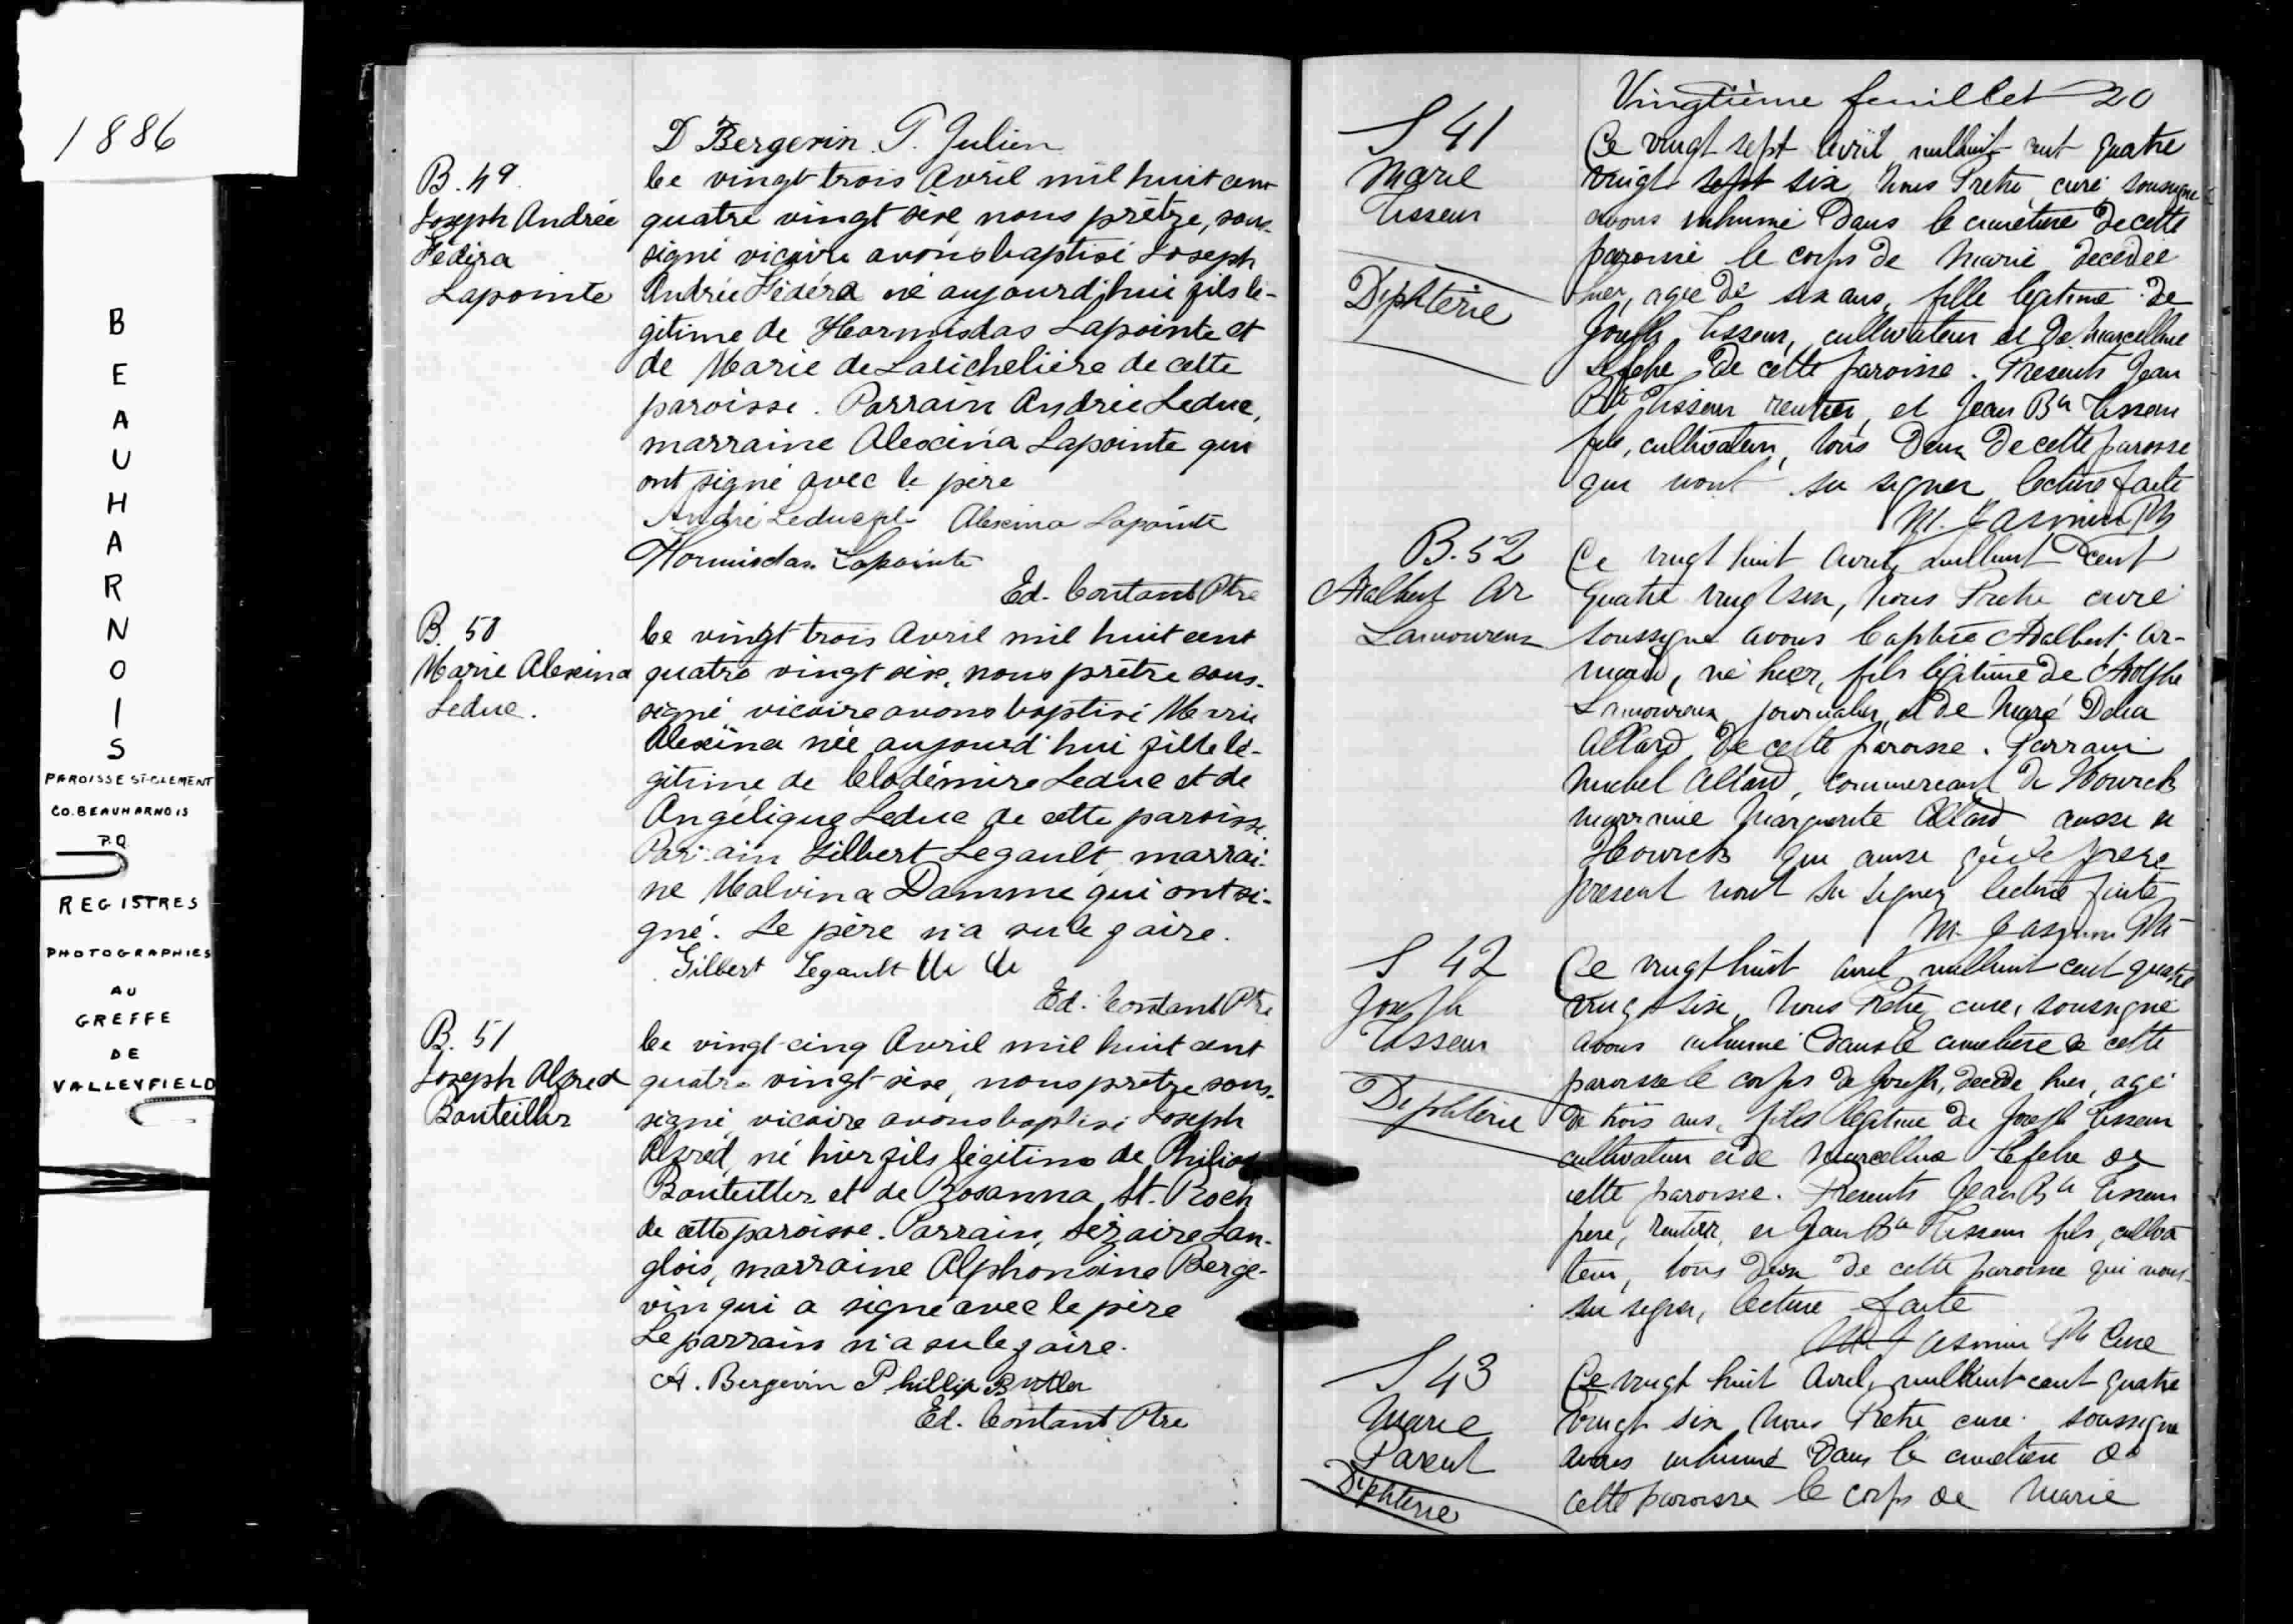 1886
BEAUHARNOIS
PAROISSE ST-CLEMENT
CO. BEAUHARNOIS
P.Q.
REGISTRES
PHOTOGRAPHIES
AU
GREFFE
DE
VALLEYFIELD
D Bergevin T. Julien
B. 49
Joseph Andrée
Fédéra
Lapointe
Le vingt trois Avril mil huit cent
quatre vingt six, nous prêtre, sous-
signé vicaire avons baptisé Joseph
Andrée Fédéra né aujourd'hui fils lé-
gitime de Hormisdas Lapointe et
de Marie de Laricheliere de cette
paroisse. Parrain Andrée Leduc,
marraine Alexina Lapointe qui
ont signé avec le père
André Leduc fils Alexina Lapointe
Hormisdas Lapointe
Ed. Contant Ptre
B. 50
Marie Alexina
Leduc.
Le vingt trois Avril mil huit cent
quatre vingt six, nous prêtre sous-
signé vicaire avons baptisé Marie
Alexina née aujourd'hui fille lé-
gitime de Clodémire Leduc et de
Angélique Leduc de cette paroisse.
Parrain Gilbert Legault, marrai-
ne Malvina Damme qui ont si-
gné. Le père n'a su le faire.
Gilbert Legault
Ed. Contant Ptre
B. 51
Joseph Alfred
Bouteiller
Le vingt-cinq Avril mil huit cent
quatre vingt-six, nous prêtre sous-
signé, vicaire avons baptisé Joseph
Alfred, né hier fils légitime de
Bouteiller et de Rosanna St. Roch
de cette paroisse. Parrain, Sézaire Lan-
glois, marraine Alphonsine Berge-
vin qui a signé avec le père
Le parrain n'a su le faire.
A. Bergevin Phillip Butler
Ed. Contant Ptre
Vingtième feuillet 20
S 41
Marie
Tisseur
Diphterie
Ce vingt sept Avril, mil huit cent quatre
vingt sept six, Nous Pretre, curé soussigné
avons inhumé Dans le cimetiere De cette
paroisse le corps de Marie décédée
hier, agée de six ans, fille legitime de
Joseph Tisseur, cultivateur et De Marcelline
Lefebre De cette paroisse. Presents Jean
Bte Tisseur rentier, et Jean Bte Tisseur
fils, cultivateur, tous Deux De cette paroisse
qui n'ont su signer, lecture faite
M. Jasmin Ptre
B. 52
Adalbert Ar
Lamoureux
Ce vingt huit Avril, mil huit cent
Quatre vingt six, Nous Pretre curé
soussigné avons Baptisé Adalbert, Ar-
mand, né hier, fils légitime de Adolphe
Lamoureux journalier, et De Marie Delia
Allard De cette paroisse. Parrain
Michel Allard, commercant De Howick
marraine Marguerite Allard, aussi de
Howick qui ainsi que le pere
present n'ont su signer lecture faite
M. Jasmin Ptre
S 42
Joseph
Tisseur
Diphterie
Ce vingt huit avril, mil huit cent quatre
vingt six, Nous Pretre, cure, soussigné
avons inhumé Dans le cimetiere de cette
paroisse le corps de Joseph, décédé hier, agé
De trois ans, fils legitime De Joseph Tisseur
cultivateur et de Marcelline Lefebre de
cette paroisse. Presents Jean Bte Tisseur
pere, rentier, et Jean Bte Tisseur fils, cultiva
teur, tous Deux De cette paroisse qui n'ont
su signer, lecture faite
M. Jasmin Ptre Cure
S 43
Marie
Parent
Diphterie
Ce vingt huit Avril, mil huit cent quatre
vingt six, Nous Pretre cure soussigné
avons inhumé Dans le cimetiere de
cette paroisse le corps de Marie